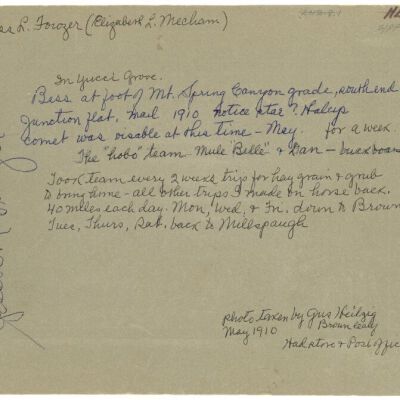 ss L. Forozer (Elizabeth L. Mecham)
In Yucci Grove.
Bess at foot of Mt. Spring Canyon grade, south end
Junction flat, mail 1910 notice star? Haleys
comet was visable at this time - May. for a week.
The "hobo" team - Mule "Belle" & Dan - buckboard
Took team every 2 weeks trip for hay grain & grub
to bring home - all other trips I made on horse back.
40 miles each day. Mon, Wed, & Fri. down to Brown
Tues, Thurs, Sat. back to Millspaugh
photo taken by Gus Heilzig
May 1910 Brown, Caly
Had store & Post Offic